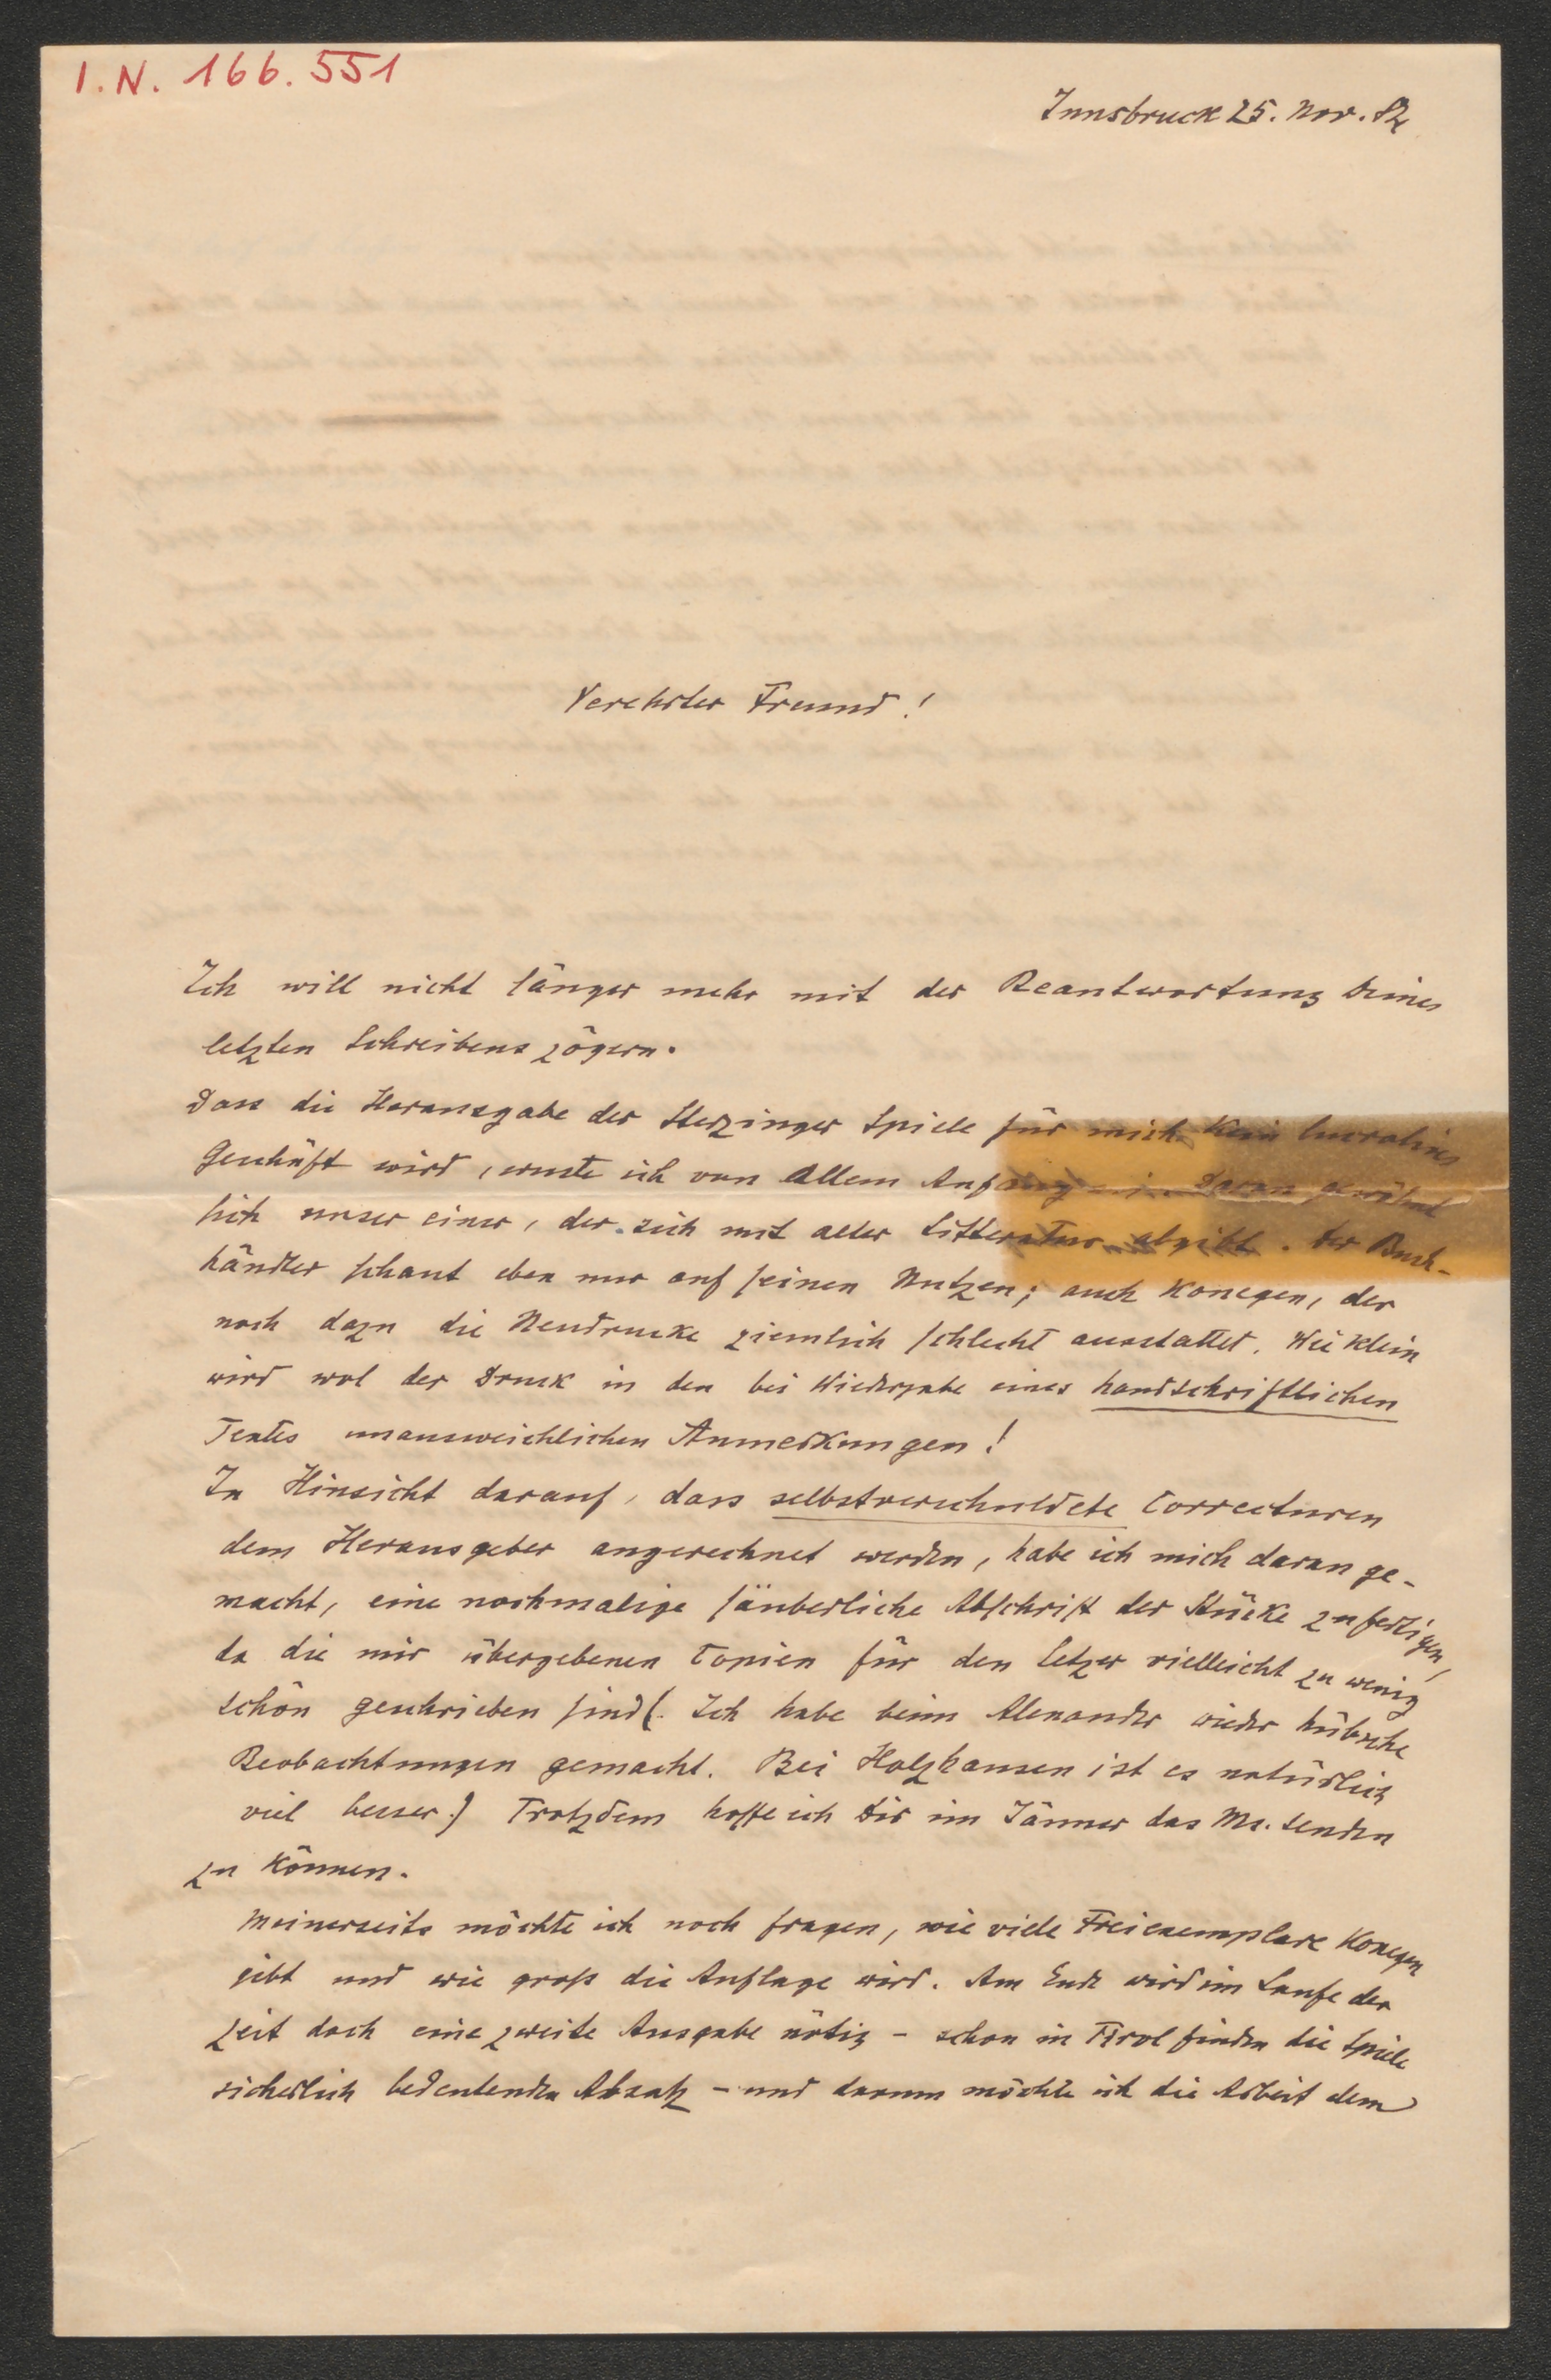 I.N. 166.551
Innsbruck 25. Nov. 82
Verehrter Freund!
Ich will nicht länger mehr mit der Beantwortung Deines
letzten Schreibens zögern.
Dass die Herausgabe der Sterzinger Spiele für mich kein lucratives
Geschäft wird, wuste ich von allem Anfang an. Daran gewöhnt
sich unser einer, der sich mit alter Litteratur abgibt. Der Buch-
händler schaut eben nur auf seinen Nutzen; auch Konegen, der
noch dazu die Neudrucke ziemlich schlecht ausstattet. Wie klein
wird wol der Druck in den bei Wiedergabe eines handschriftlichen
Textes unausweichlichen Anmerkungen!
In Hinsicht darauf, dass selbstverschuldete Correcturen
dem Herausgeber angerechnet werden, habe ich mich daran ge-
macht, eine nochmalige säuberliche Abschrift der Stücke zu fertigen,
da die mir übergebenen Copien für den Setzer vielleicht zu wenig
schön geschrieben sind (. Ich habe beim Alexander wieder hübsche
Beobachtungen gemacht. Bei Holzhausen ist es natürlich
viel besser.) Trotzdem hoffe ich Dir im Jänner das Ms. senden
zu können.
Meinerseits möchte ich noch fragen, wie viele Freiexemplare Konegen
gibt und wie groß die Auflage wird. Am Ende wird im Laufe der
Zeit doch eine zweite Ausgabe nötig – schon in Tirol finden die Spiele
sicherlich bedeutenden Absatz – und darum möchte ich die Arbeit dem